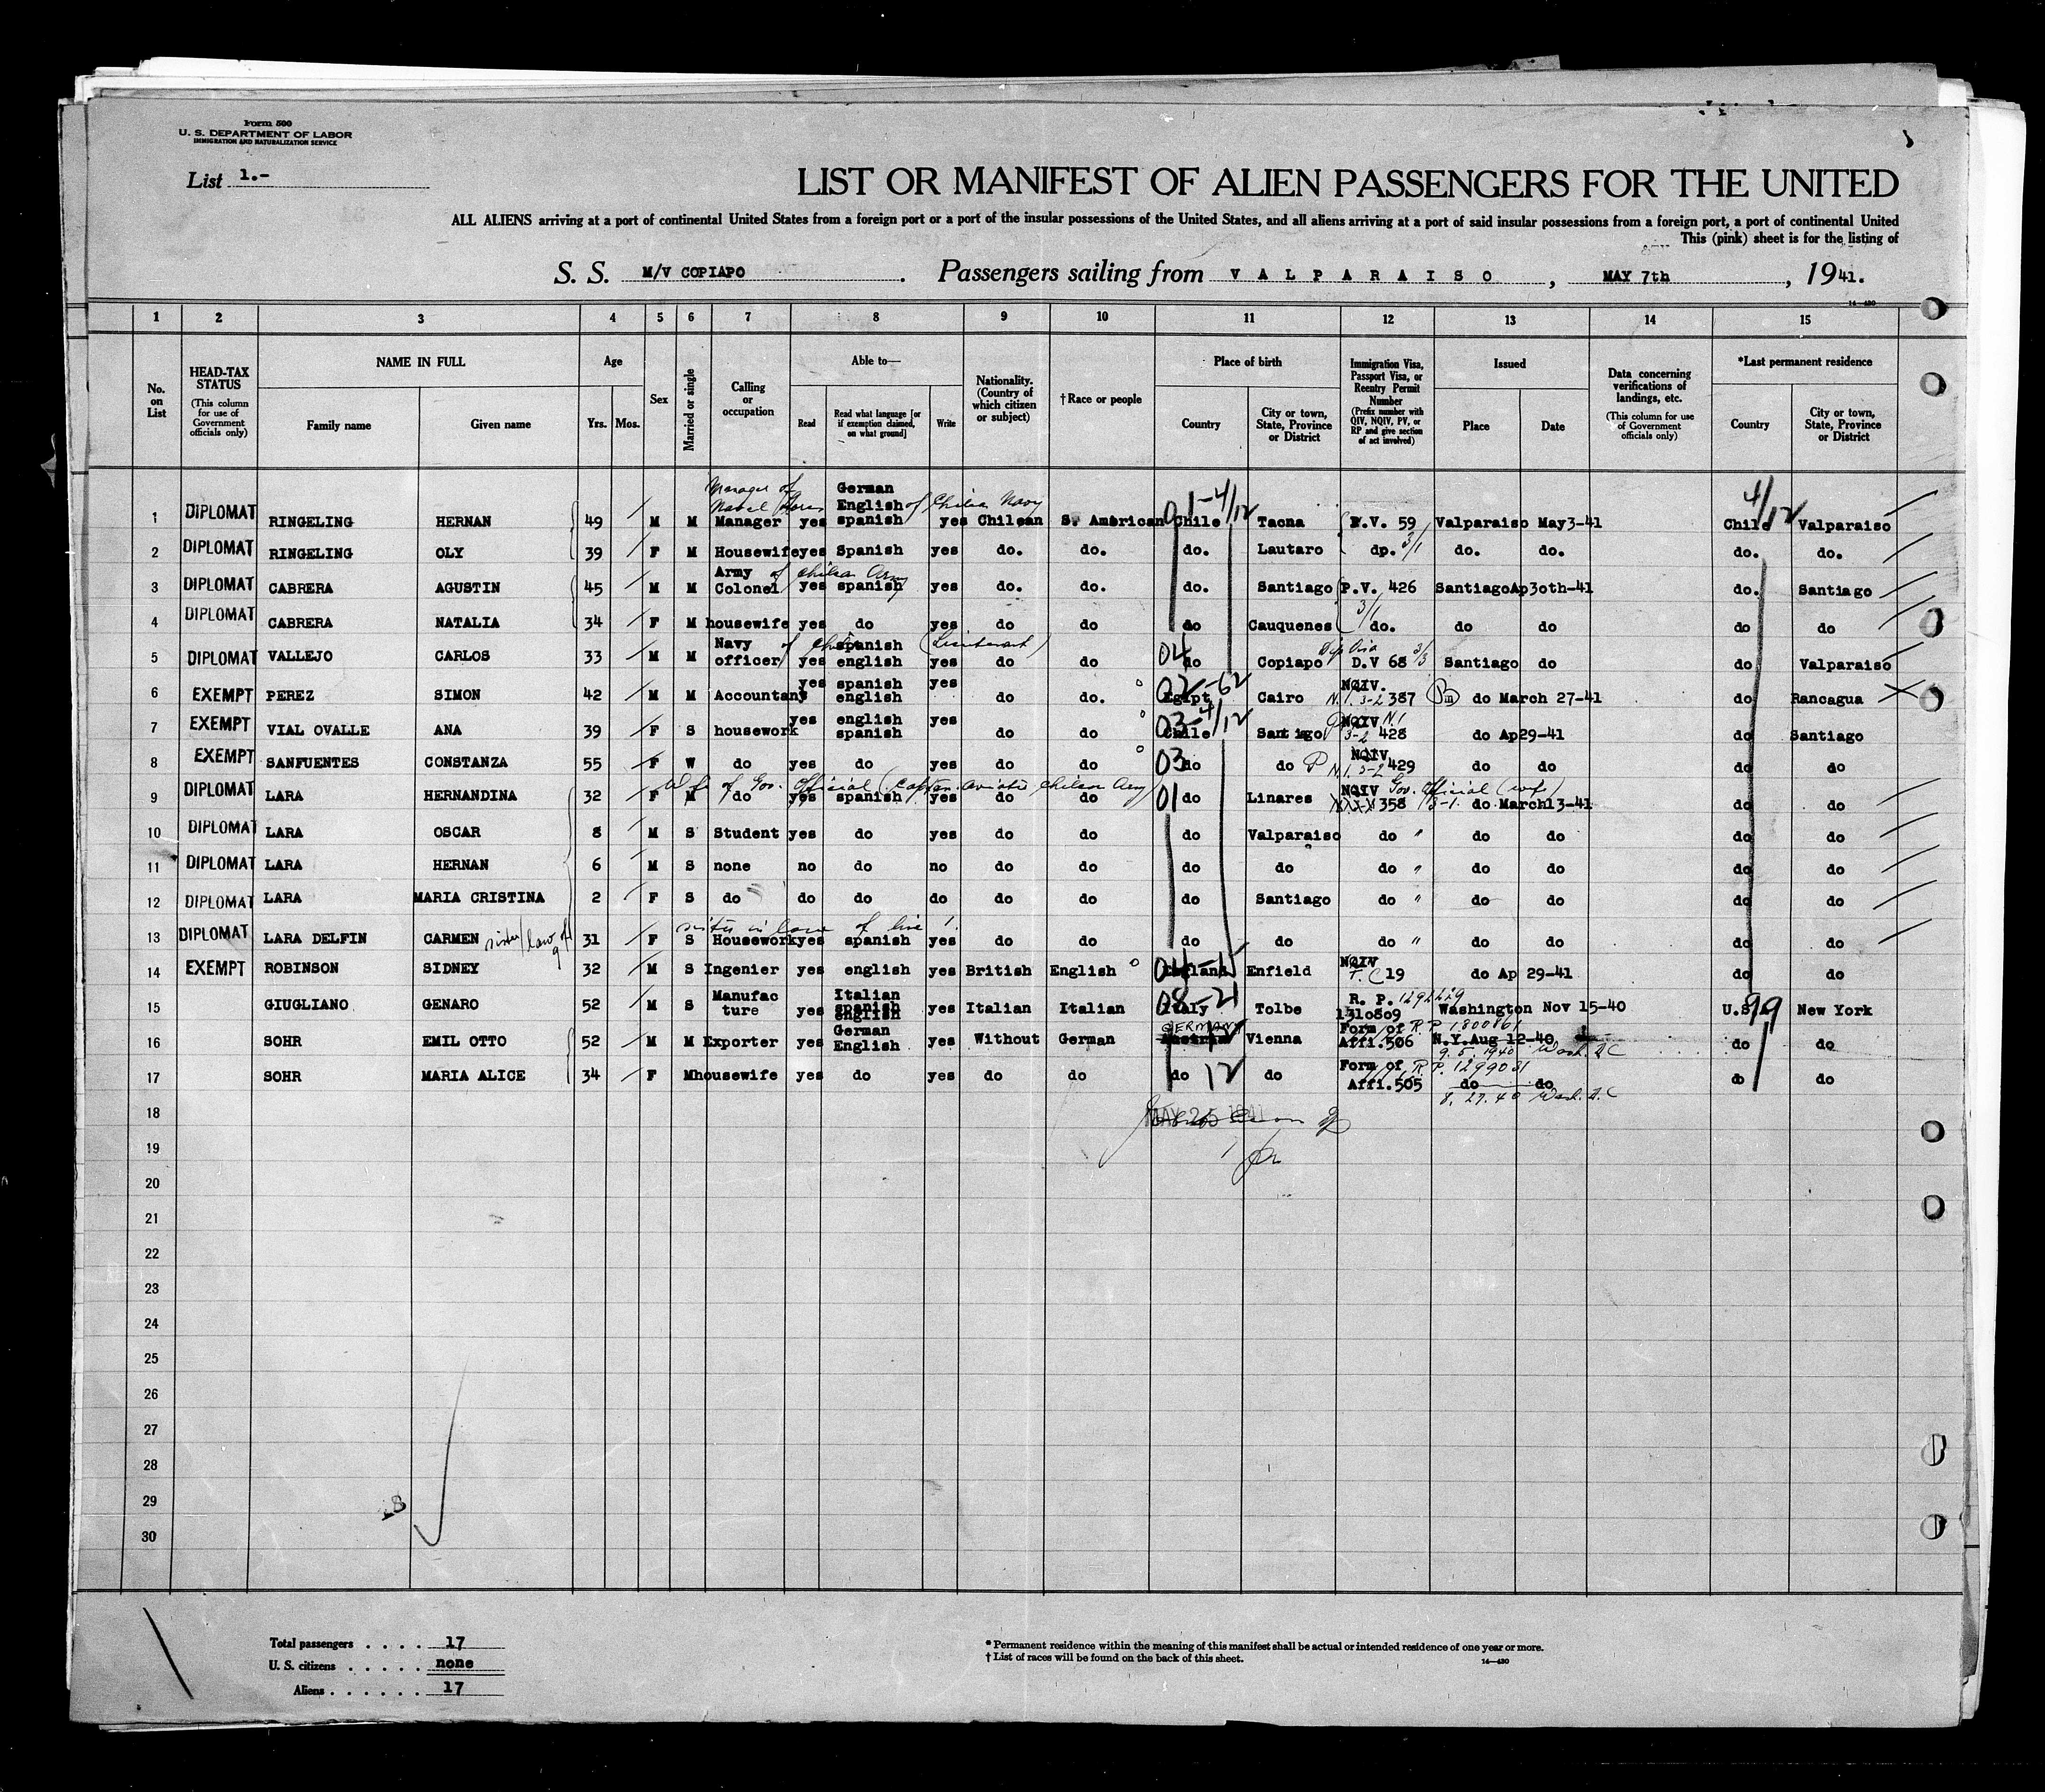 Form 500
U. S. DEPARTMENT OF LABOR
IMMIGRATION AND NATURALIZATION SERVICE
List 1.-
LIST OR MANIFEST OF ALIEN PASSENGERS FOR THE UNITED
ALL ALIENS arriving at a port of continental United States from a foreign port or a port of the insular possessions of the United States, and all aliens arriving at a port of said insular possessions from a foreign port, a port of continental United
This (pink) sheet is for the listing of
S. S. M/V COPIAPO. Passengers sailing from VALPARAISO, MAY 7th, 1941.
14-430
1 2 3 4 5 6 7 8 9 10 11 12 13 14 15
No. on List
HEAD-TAX STATUS (This column for use of Government officials only)
NAME IN FULL Family name Given name
Age Yrs. Mos.
Sex
Married or single
Calling or occupation
Able to— Read Read what language [or if exemption claimed, on what ground] Write
Nationality. (Country of which citizen or subject)
†Race or people
Place of birth Country City or town, State, Province or District
Immigration Visa, Passport Visa, or Reentry Permit Number (Prefix number with QIV, NQIV, PV, or RP and give section of act involved)
Issued Place Date
Data concerning verifications of landings, etc. (This column for use of Government officials only)
*Last permanent residence Country City or town, State, Province or District
Manager of German
of Chilea Navy 01-4/12 4/12
1 DIPLOMAT RINGELING HERNAN 49 M M Manager yes English spanish yes Chilean S. American Chile Tacna P.V. 59 Valparaiso May3-41 Chile Valparaiso
2 DIPLOMAT RINGELING OLY 39 F M Housewife yes Spanish yes do. do. do. Lautaro dp. 3/1 do. do. do. do.
3 DIPLOMAT CABRERA AGUSTIN 45 M M Army Colonel of Chilean Army yes spanish yes do. do. do. Santiago P.V. 426 Santiago Ap30th-41 do. Santiago
4 DIPLOMAT CABRERA NATALIA 34 F M housewife yes do yes do do do Cauquenes 3/1 do. do do do do
5 DIPLOMAT VALLEJO CARLOS 33 M M Navy officer of Chile (Lieutenant) yes spanish english yes do do 04 do Copiapo Dip Visa D.V 68 3/3 Santiago do do Valparaiso
6 EXEMPT PEREZ SIMON 42 M M Accountant yes spanish english yes do do. 02-62 Egipt Cairo NQIV. N.I. 3-2 387 do March 27-41 do Rancagua
7 EXEMPT VIAL OVALLE ANA 39 F S housework yes english spanish yes do do 03-4/12 Chile Santiago NQIV N.I 3-2 428 do Ap29-41 do Santiago
8 EXEMPT SANFUENTES CONSTANZA 55 F W do yes do yes do do 03 do do P NQIV N.I. 3-2 429 do do do do
Wife of Gov. Official (Captan. aviato Chilean Army) Gov. Official (wife)
9 DIPLOMAT LARA HERNANDINA 32 F M do yes spanish yes do do 01 do Linares NQIV 358 3-1. do March13-41 do do
10 DIPLOMAT LARA OSCAR 8 M S Student yes do yes do do do Valparaiso do " do do do do
11 DIPLOMAT LARA HERNAN 6 M S none no do no do do do do do " do do do do
12 DIPLOMAT LARA MARIA CRISTINA 2 F S do do do do do do do Santiago do " do do do do
sister in law of line
13 DIPLOMAT LARA DELFIN CARMEN sister/law of 9 31 F S Housework yes spanish yes do do do do do " do do do do
14 EXEMPT ROBINSON SIDNEY 32 M S Ingenier yes english yes British English England Enfield NQIV 19 do Ap 29-41 do do
15 GIUGLIANO GENARO 52 M S Manufac ture yes Italian spanish english yes Italian Italian 08-21 Italy Tolbe R. P. 1292229 1310809 Washington Nov 15-40 U.S. 99 New York
16 SOHR EMIL OTTO 52 M M Exporter yes German English yes Without German GERMANY Austria Vienna Form of R.P. 1300861 Affi.506 N.Y.Aug 12-40 9.5.1940 Wash. D.C do do
17 SOHR MARIA ALICE 34 F M housewife yes do yes do do do 12 do Form of R.P. 1299031 Affi.505 do do 8.27.40 Wash. D.C do do
18 MAY 25 1941
19
20
21
22
23
24
25
26
27
28
29
30
Total passengers .... 17
U. S. citizens ..... none
Aliens ...... 17
* Permanent residence within the meaning of this manifest shall be actual or intended residence of one year or more.
† List of races will be found on the back of this sheet.
14-430